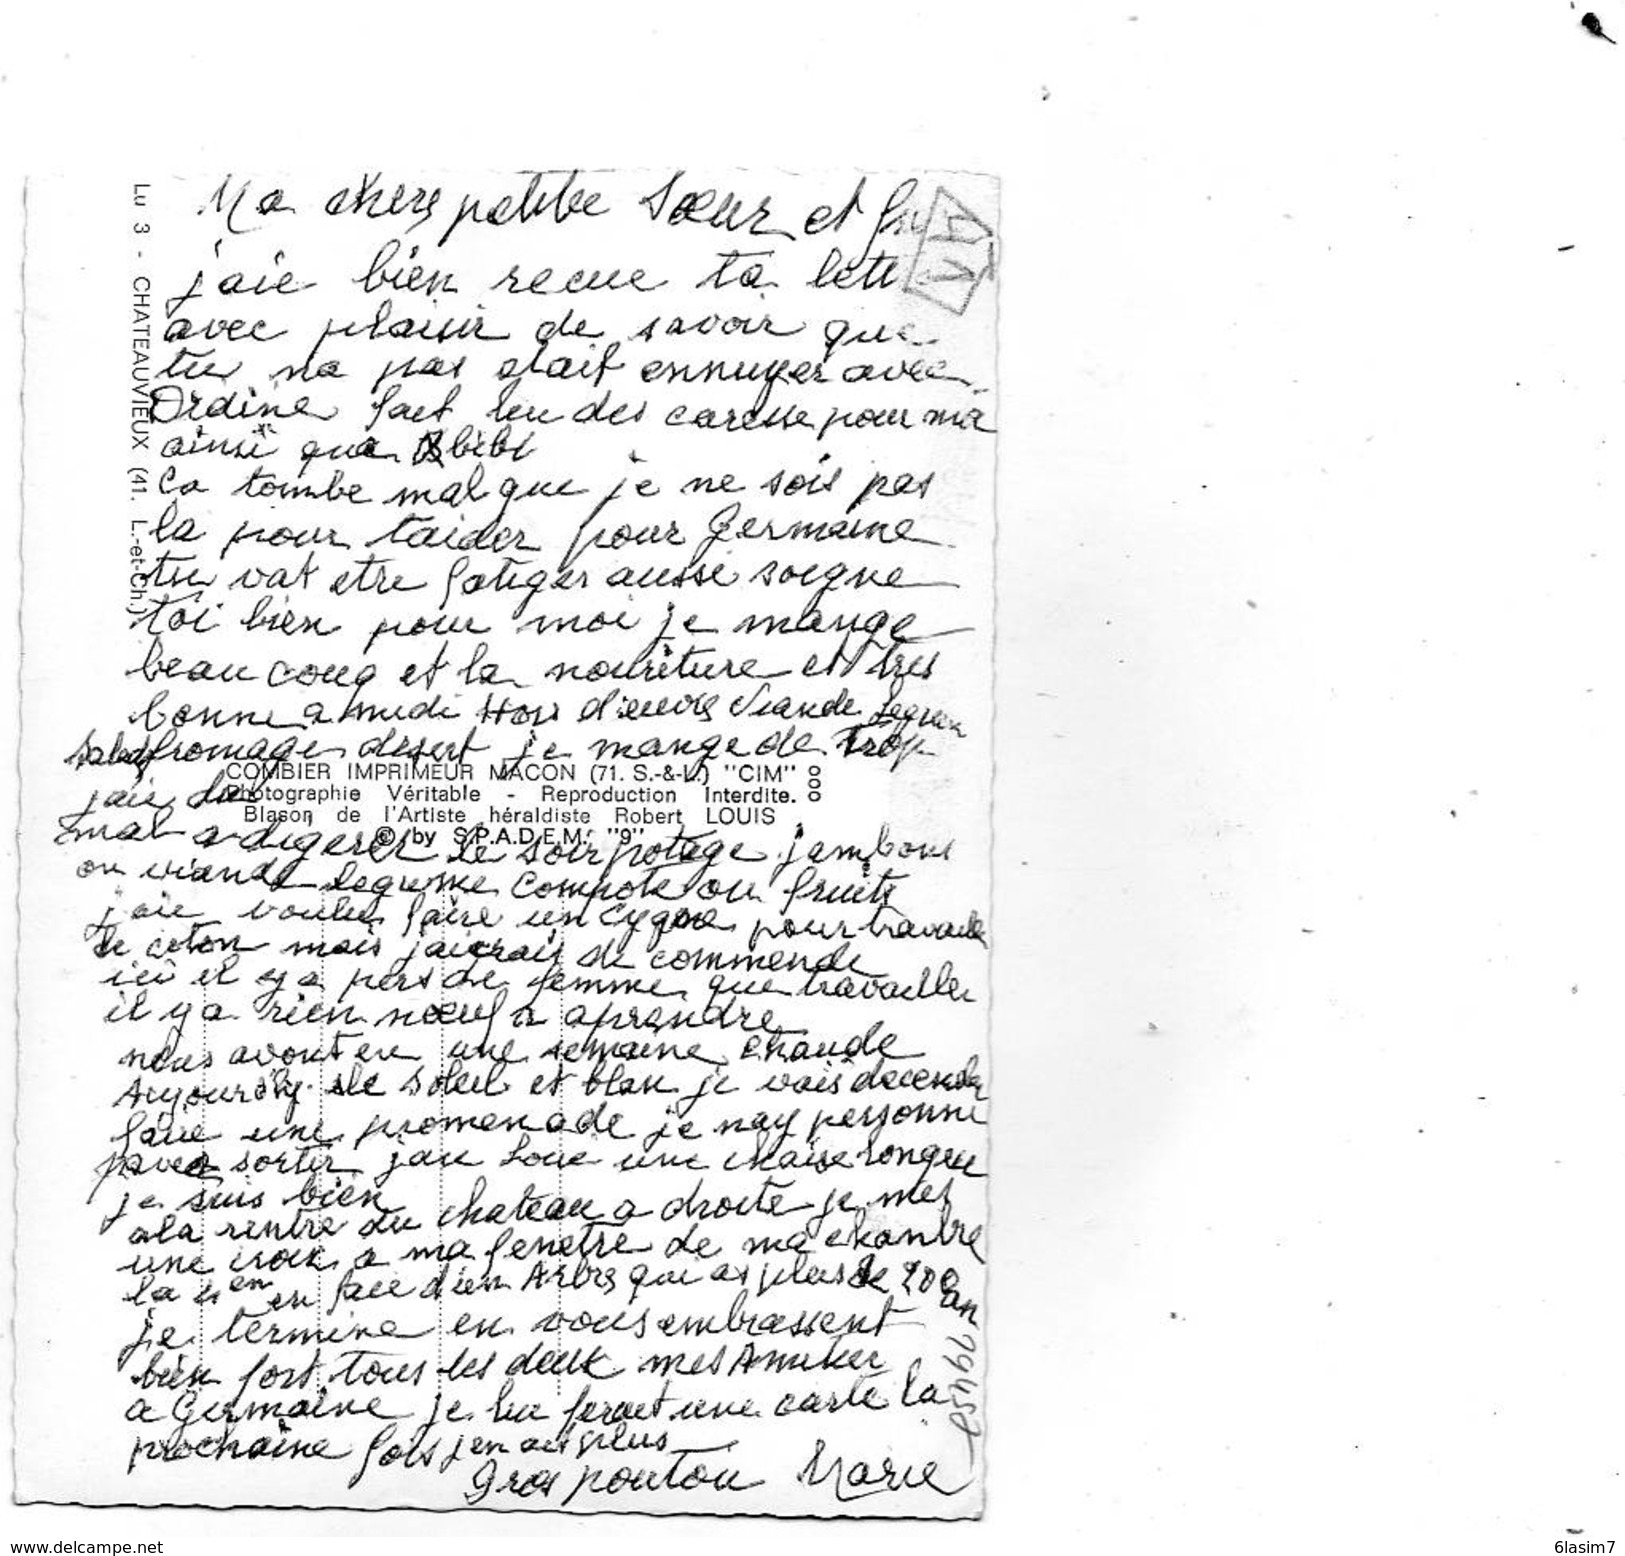 Ma chere petite Sœur et
jaie bien recue ta lett
avec plaisir de savoir que
tu na pas etait ennuyer avec
Ordine fact leu des caresse pour moi
ainsi que Bibi
Ca tombe mal que je ne sois pas
la pour taider pour Germaine
tu vat etre fatiger aussi soigne
toi bien pour moi je mange
beaucoup et la nouriture et tres
bonne a midi Hors d'euvre Viande Legume
salad fromage desert je mange de trop
jaie du
mal a digerer le soir potage jambons
ou viande legume compote ou fruits
jaie voulu faire un Cygne pour travaille
le coton mais jaierais de commende
ici il y a pers de femme que travailler
il y a rien nœuf a aprendre
nous avont eu une semaine chaude
Aujourdhy le Soleil et blan je vais decendre
faire une promenade je nay personne
pavec sortir jaie Loue une chaise longeu
je suis bien
a la rentre du chateau a droite je mes
une croix a ma fenetre de ma chambre
la en en face d'un Arbre que as plus de 200 an
je termine en vous embrassent
bien fort tous les deux mes Amitier
a Germaine je lui ferait une carte la
prochaine fois jen ait plus
Gros poutou Marie
Lu 3 - CHATEAUVIEUX (41. L.-et-Ch.)
COMBIER IMPRIMEUR MACON (71. S.-&-L.) "CIM"
Photographie Véritable - Reproduction Interdite.
Blason de l'Artiste héraldiste Robert LOUIS
© by S.P.A.D.E.M. "9"
41
www.delcampe.net
6lasim7